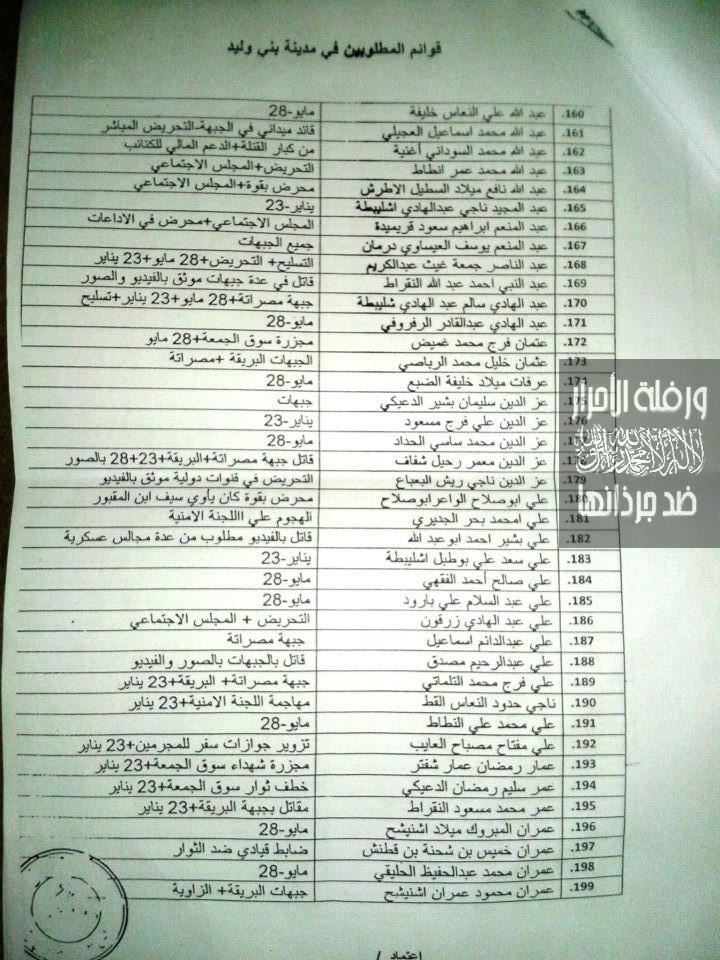 قوائم المطلوبين في مدينة بني وليد
160. عبد الله علي النعاس خليفة 28-مايو
161. عبد الله محمد اسماعيل العجيلي قائد ميداني في الجبهة-التحريض المباشر
162. عبد الله محمد السوداني أغنية من كبار القتلة+الدعم المالي للكتائب
163. عبد الله محمد عمر انطاط التحريض+المجلس الاجتماعي
164. عبد الله نافع ميلاد السطيل الاطرش محرض بقوة+المجلس الاجتماعي
165. عبد المجيد ناجي عبدالهادي اشليبطة 23-يناير
166. عبد المنعم ابراهيم سعود قريميدة المجلس الاجتماعي+محرض في الاذاعات
167. عبد المنعم يوسف العيساوي درمان جميع الجبهات
168. عبد الناصر جمعة غيث عبدالكريم التسليح+ التحريض+28 مايو+23 يناير
169. عبد النبي احمد عبد الله النقراط قاتل في عدة جبهات موثق بالفيديو والصور
170. عبد الهادي سالم عبد الهادي شليبطة جبهة مصراتة+28 مايو+23 يناير+تسليح
171. عبد الهادي عبدالقادر الرفروفي 28-مايو
172. عتمان فرج محمد غميض مجزرة سوق الجمعة+28 مايو
173. عثمان خليل محمد الرباصي الجبهات البريقة +مصراتة
174. عرفات ميلاد خليفة الضبع 28-مايو
175. عز الدين سليمان بشير الدعيكي جبهات
176. عز الدين علي فرج مسعود 23-يناير
177. عز الدين محمد ساسي الحداد 28-مايو
178. عز الدين معمر رحيل شفاف قاتل جبهة مصراتة+البريقة+23+28 بالصور
179. عز الدين ناجي ريش البعباع التحريض في قنوات دولية موثق بالفيديو
180. علي ابوصلاح الواعرابوصلاح محرض بقوة كان يأوي سيف ابن المقبور
181. علي امحمد بحر الجديري الهجوم علي االلجنة الامنية
182. علي بشير احمد ابوعبد الله قاتل بالفيديو مطلوب من عدة مجالس عسكرية
183. علي سعد علي بوطبل اشليبطة 23-يناير
184. علي صالح أحمد الفقهي 28-مايو
185. علي عبد السلام علي بارود 28-مايو
186. علي عبد الهادي زرقون التحريض + المجلس الاجتماعي
187. علي عبدالدائم اسماعيل جبهة مصراتة
188. علي عبدالرحيم مصدق قاتل بالجبهات بالصور والفيديو
189. علي فرج محمد التلماتي جبهة مصراتة+ البريقة+23 يناير
190. ناجي حدود النعاس القط مهاجمة اللجنة الامنية+23 يناير
191. علي محمد علي النطاط 28-مايو
192. علي مفتاح مصباح العايب تزوير جوازات سفر للمجرمين+23 يناير
193. عمار رمضان عمار شفتر مجزرة شهداء سوق الجمعة+23 يناير
194. عمر سليم رمضان الدعيكي خطف ثوار سوق الجمعة+23 يناير
195. عمر محمد مسعود النقراط مقاتل بجبهة البريقة+23 يناير
196. عمران المبروك ميلاد اشنيشح 28-مايو
197. عمران خميس بن شحنة بن قطنش ضابط قيادي ضد الثوار
198. عمران محمد عبدالحفيظ الحليقي 28-مايو
199. عمران محمود عمران اشنيشح جبهات البريقة+ الزاوية
اعتماد /
ورفلة الأحرار
لا إله إلا الله محمد رسول الله
ضد جرذانها